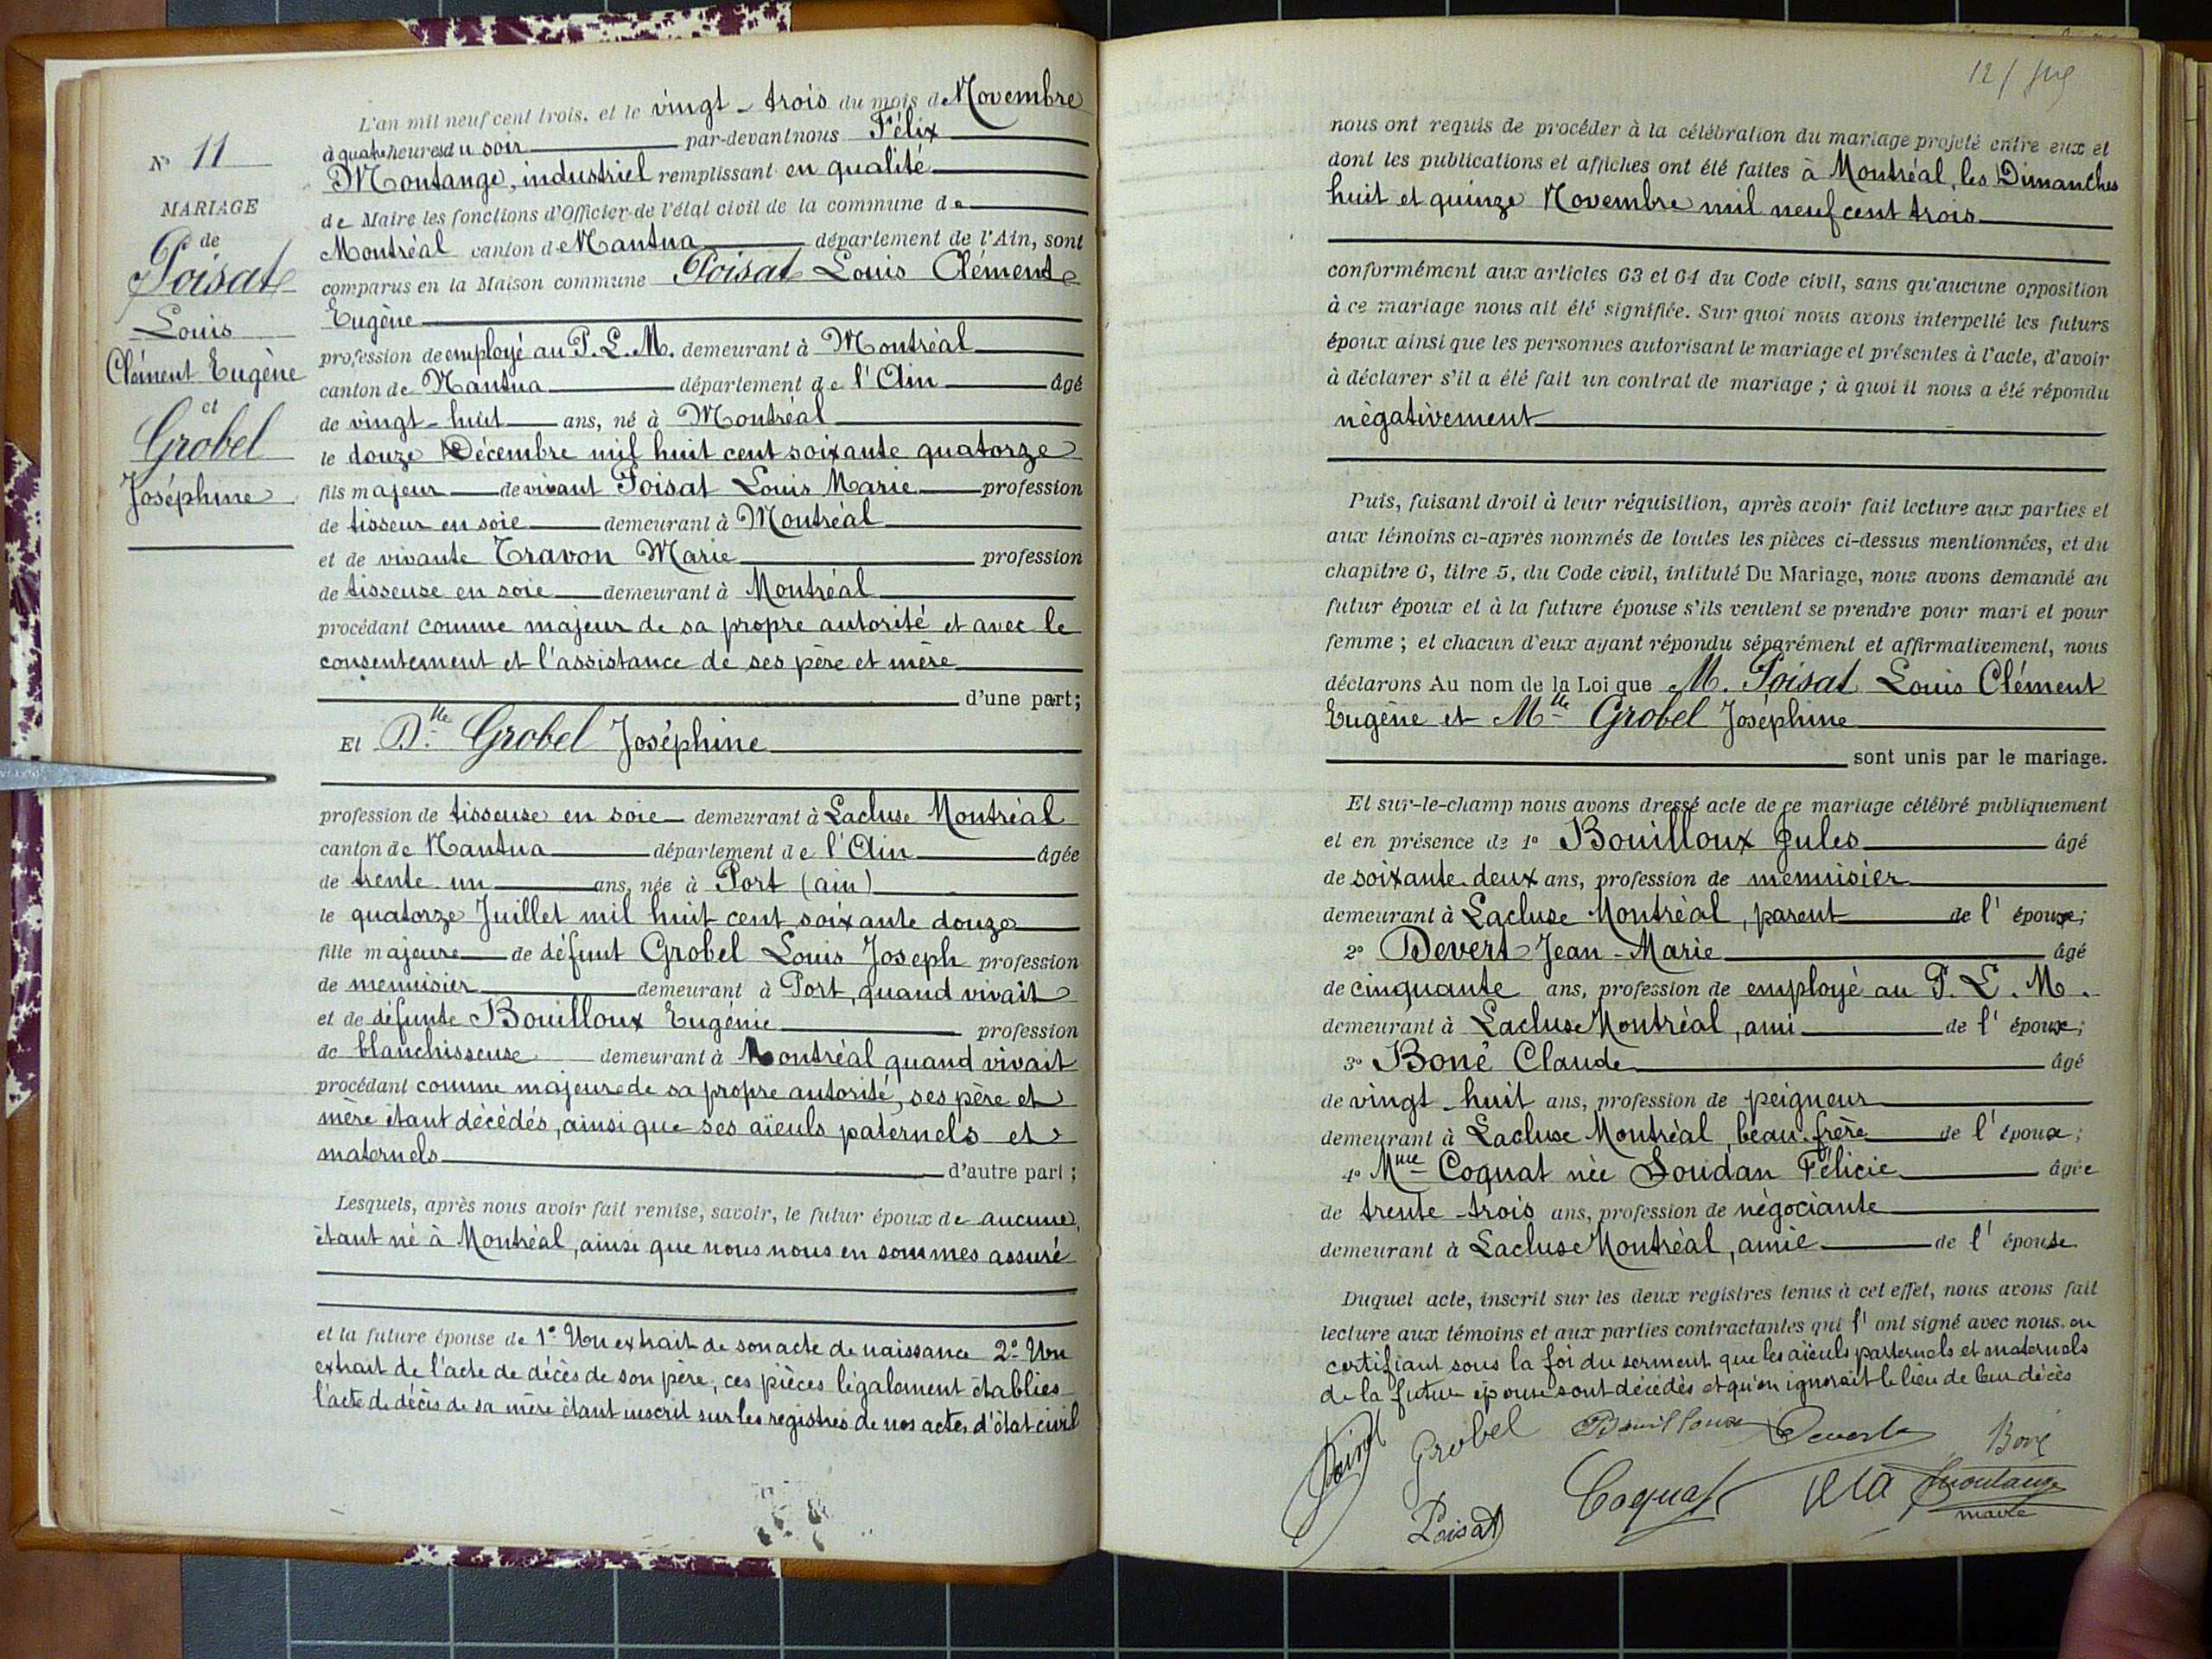 N° 11
MARIAGE
de
Poisat
Louis
Clément Eugène
et
Grobel
Joséphine
L'an mil neuf cent trois, et le vingt-trois du mois de Novembre
à quatre heures du soir par-devant nous Félix
Montange, industriel remplissant en qualité
de Maire les fonctions d'Officier de l'état civil de la commune de
Montréal canton de Nantua département de l'Ain, sont
comparus en la Maison commune Poisat Louis Clément
Eugène
profession de employé au P. L. M. demeurant à Montréal
canton de Nantua département de l'Ain âgé
de vingt-huit ans, né à Montréal
le douze Décembre mil huit cent soixante quatorze
fils majeur de vivant Poisat Louis Marie profession
de tisseur en soie demeurant à Montréal
et de vivante Travon Marie profession
de tisseuse en soie demeurant à Montréal
procédant comme majeur de sa propre autorité et avec le
consentement et l'assistance de ses père et mère
d'une part;
Et Dlle Grobel Joséphine
profession de tisseuse en soie demeurant à Lacluse Montréal
canton de Nantua département de l'Ain âgée
de trente-un ans, née à Port (ain)
le quatorze Juillet mil huit cent soixante douze
fille majeure de défunt Grobel Louis Joseph profession
de menuisier demeurant à Port, quand vivait
et de défunte Bouilloux Eugénie profession
de blanchisseuse demeurant à Montréal quand vivait
procédant comme majeure de sa propre autorité, ses père et
mère étant décédés, ainsi que ses aïeuls paternels et
maternels d'autre part;
Lesquels, après nous avoir fait remise, savoir, le futur époux de aucune,
étant né à Montréal, ainsi que nous nous en sommes assuré
et la future épouse de 1° Un extrait de son acte de naissance 2° Un
extrait de l'acte de décès de son père; ces pièces légalement établies
l'acte de décès de sa mère étant inscrit sur les registres de nos actes d'état civil
12/
nous ont requis de procéder à la célébration du mariage projeté entre eux et
dont les publications et affiches ont été faites à Montréal, les Dimanches
huit et quinze Novembre mil neuf cent trois
conformément aux articles 63 et 64 du Code civil, sans qu'aucune opposition
à ce mariage nous ait été signifiée. Sur quoi nous avons interpellé les futurs
époux ainsi que les personnes autorisant le mariage et présentes à l'acte, d'avoir
à déclarer s'il a été fait un contrat de mariage; à quoi il nous a été répondu
négativement
Puis, faisant droit à leur réquisition, après avoir fait lecture aux parties et
aux témoins ci-après nommés de toutes les pièces ci-dessus mentionnées, et du
chapitre 6, titre 5, du Code civil, intitulé Du Mariage, nous avons demandé au
futur époux et à la future épouse s'ils veulent se prendre pour mari et pour
femme; et chacun d'eux ayant répondu séparément et affirmativement, nous
déclarons Au nom de la Loi que M. Poisat Louis Clément
Eugène et Mlle Grobel Joséphine
sont unis par le mariage.
Et sur-le-champ nous avons dressé acte de ce mariage célébré publiquement
et en présence de 1° Bouilloux Jules âgé
de soixante-deux ans, profession de menuisier
demeurant à Lacluse Montréal, parent de l'épouse;
2° Devert Jean-Marie âgé
de cinquante ans, profession de employé au P. L. M.
demeurant à Lacluse Montréal, ami de l'époux;
3° Boné Claude âgé
de vingt-huit ans, profession de peigneur
demeurant à Lacluse Montréal, beau-frère de l'époux;
4° Mme Coquat née Soudan Félicie âgée
de trente-trois ans, profession de négociante
demeurant à Lacluse Montréal, amie de l'épouse
Duquel acte, inscrit sur les deux registres tenus à cet effet, nous avons fait
lecture aux témoins et aux parties contractantes qui l'ont signé avec nous. en
certifiant sous la foi du serment que les aïeuls parternels et maternels
de la future épouse sont décédés et qu'on ignorait le lieu de leur décès
Poisat Grobel Bouilloux Devert Boné
Poisat Coquat Montange
maire